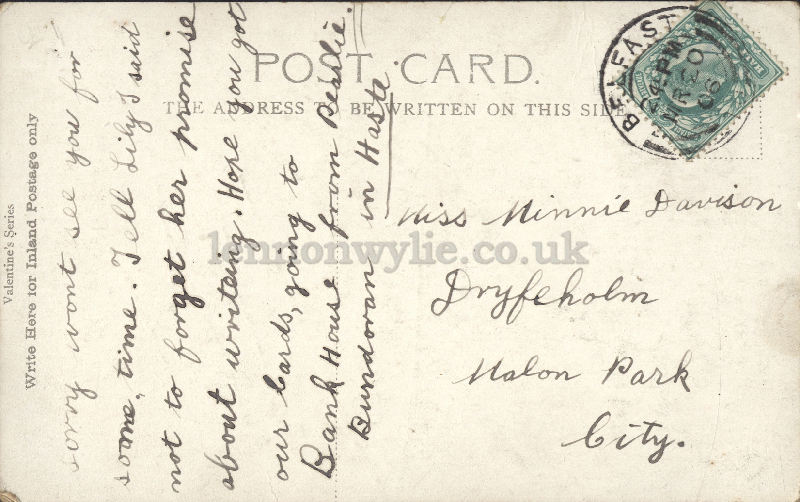 POST CARD.
THE ADDRESS TO BE WRITTEN ON THIS SIDE
Valentine's Series
Write Here for Inland Postage only
sorry wont see you for
some, time. Tell Lily I said
not to forget her promise
about writeing. Hope you got
our Cards, going to
Bank House from Pearlie.
Bundoran in Haste
BELFAST
PM
20
06
Miss Minnie Davison
Dryfeholm
Malon Park
City.
lennonwylie.co.uk